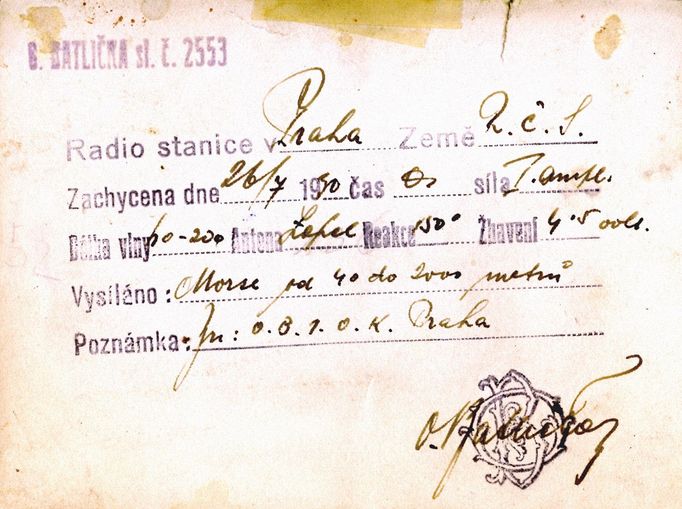 O. BATLIČKA sl. č. 2553
Radio stanice v Praha Země R.Č.S.
Zachycena dne 26/7 1930 čas síla
Délka vlny Antena Reakce 150° Žhavení 4.5 volt.
Vysíláno: Morse od 40 do 2000 metrů
Poznámka: O.B.1.O.K. Praha
O. Batlička